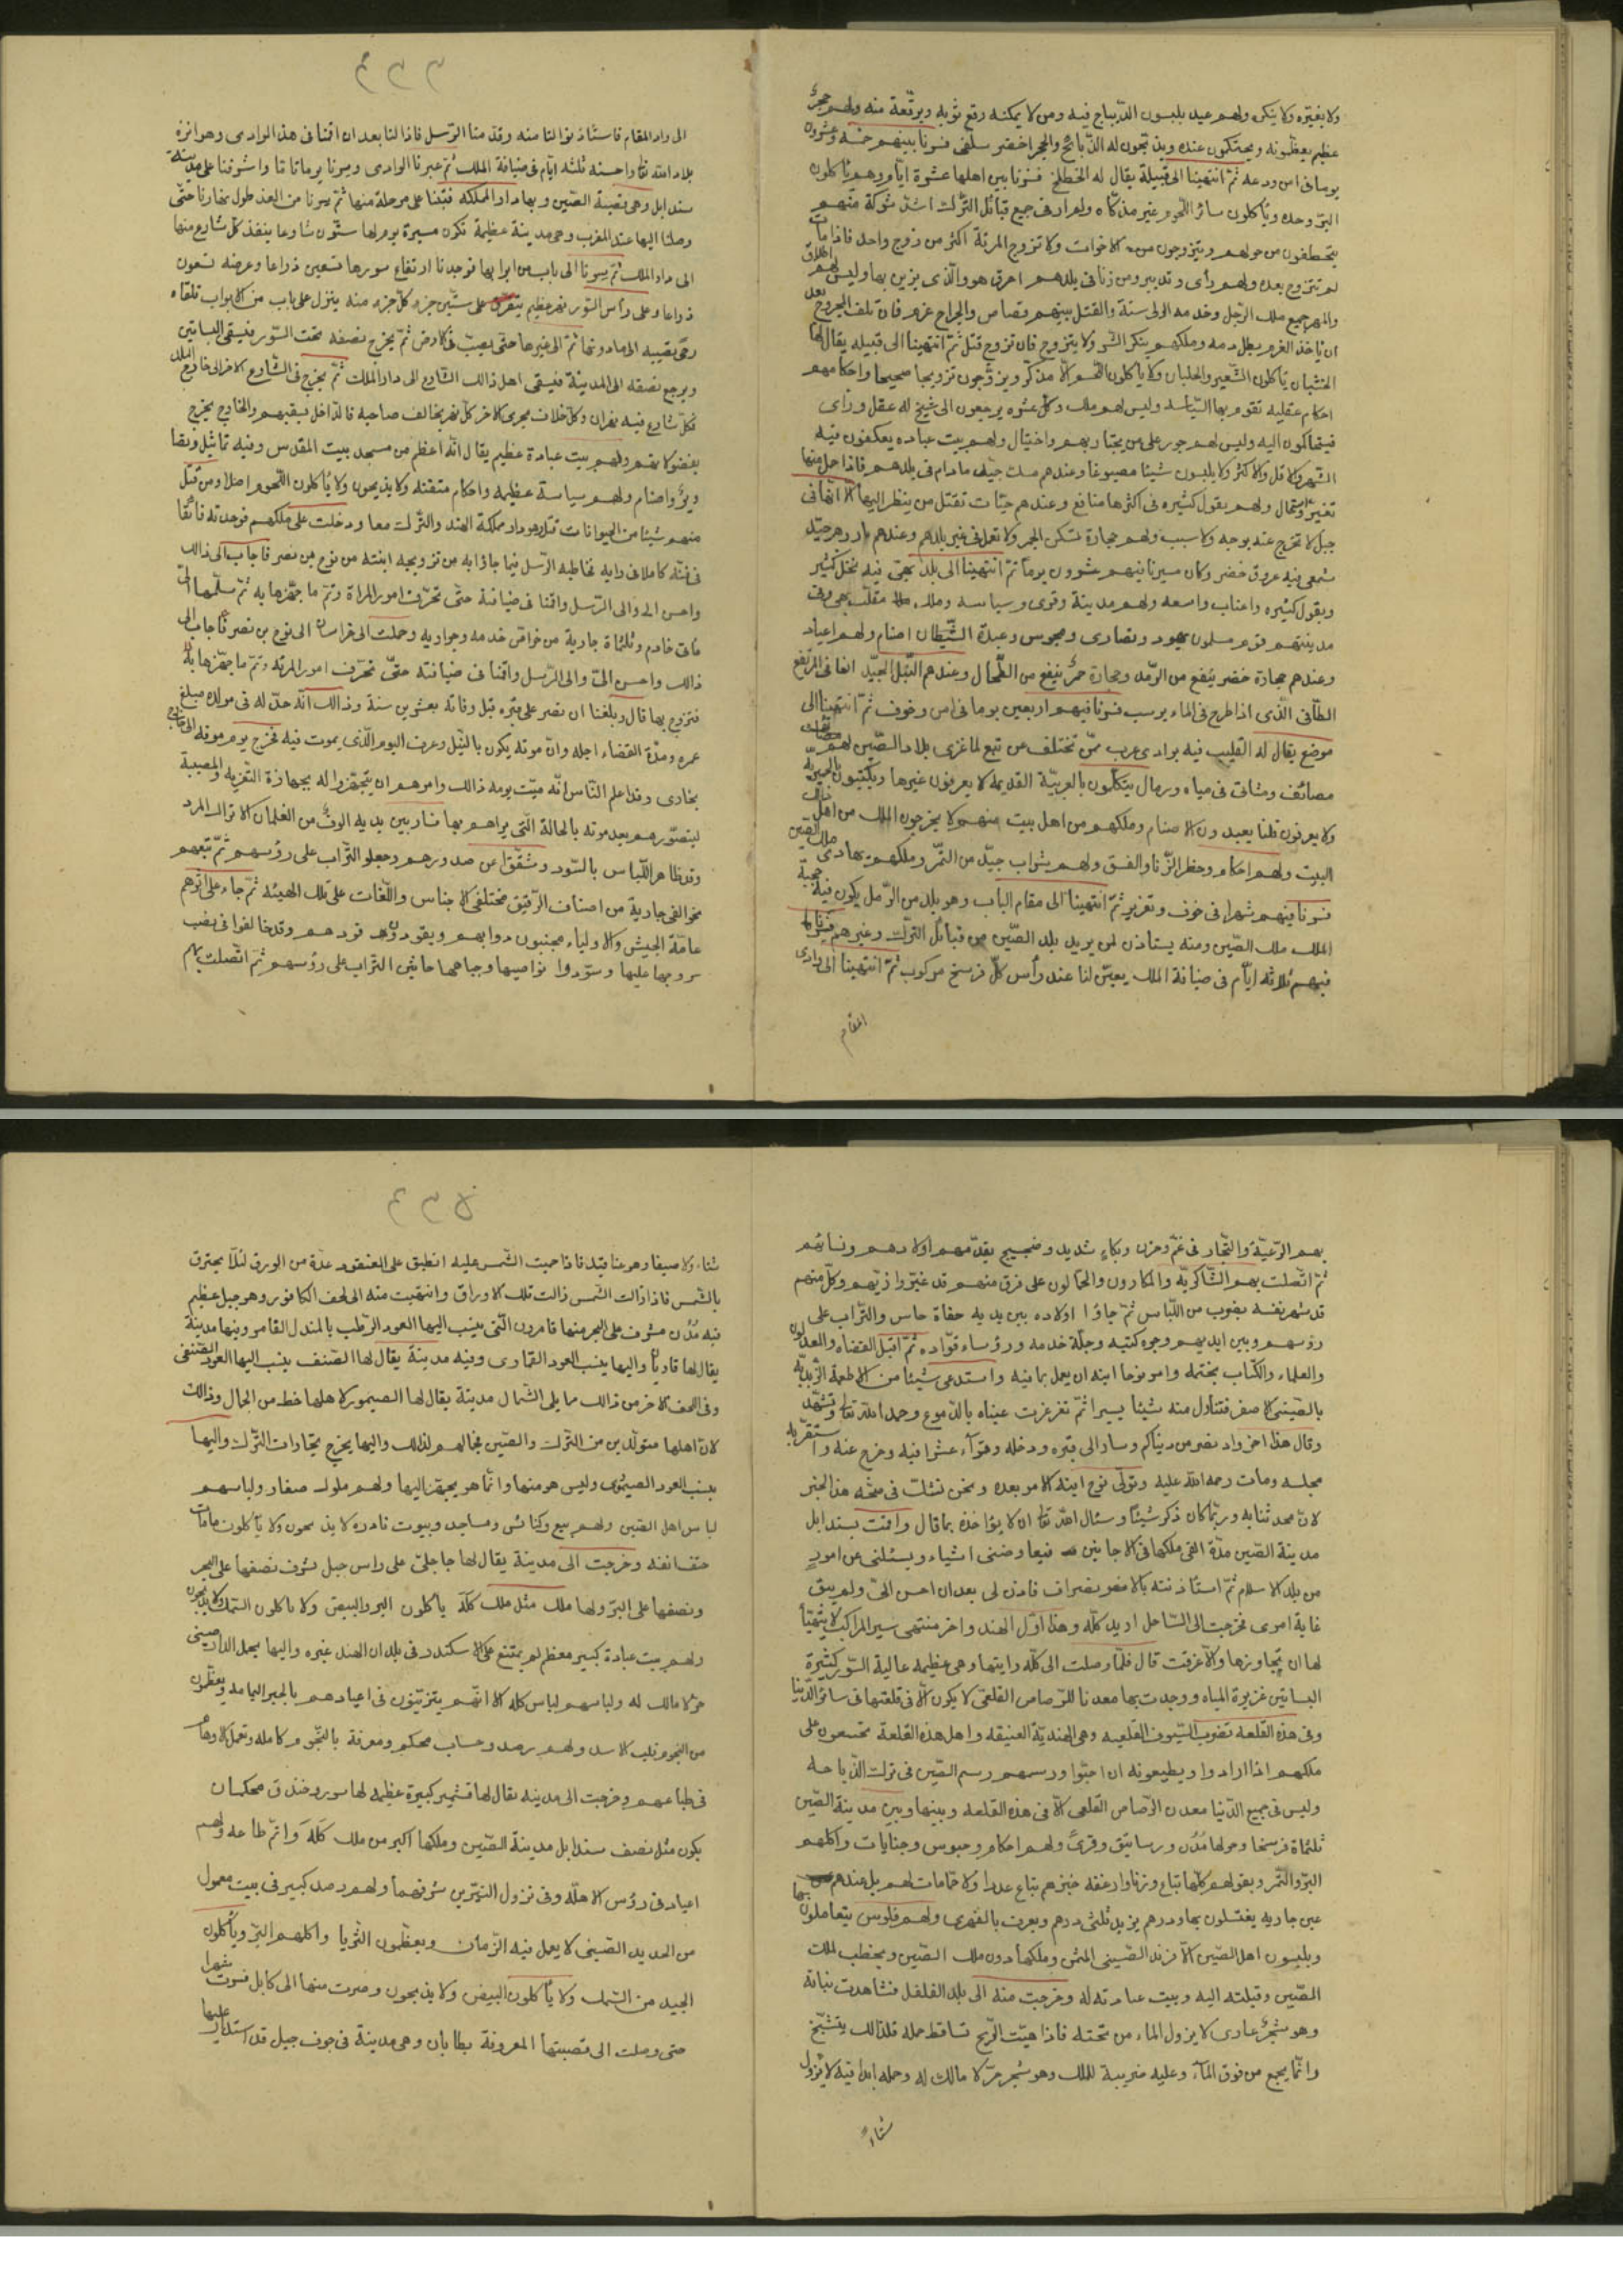 ولا بغيره ولا ينكى ولهم عيد يلبسون الدّيباج فيه ومن لا يمكنه رقع ثوبه ويرقعة منه ولهم حجر
عظيم يعظمونه ويحتكمون عنده ويذبحون له الذّبائح والحجر اخضر سلقى فسرنا بينهم خمسة وعشرون
يوما فى امن ودعة ثمّ انتهينا الى قبيلة يقال له الخطلخ فسرنا بين اهلها عشرة ايّام وهم ياكلون
البرّ وحده وياكلون سائر اللّحوم غير مذكّاه ولم ار فى جميع قبائل التّرك اشدّ شوكة منهم
يتخطفون من حولهم ويتزوجون الاخوات ولا تزوج المرئة اكثر من زوج واحد فاذا مات
لم تتزوج بعده ولهم رأى وتدبير ومن زنا فى بلدهم احرق هو والّذى يزين بها وليس لهم طلاق
والمهر جميع ملك الرّجل وخدمة الولى سنة والقتل بينهم قصاص والجراح غرم فان تلف المجروح بعد
ان ياخذ الغرم بطل دمه وملكهم ينكر الشّر ولا يتزوج فان تزوج قتل ثمّ انتهينا الى قبيله يقال لها
الختيان ياكلون الشّعير والجلبان ولا ياكلون اللّحم الّا مذكّى ويزوّجون تزويجا صحيحا واحكامهم
احكام عقليه تقوم بها السّياسة وليس لهم ملك وكلّ عشره يرجعون الى شيخ له عقل ورأى
فيتحاكمون اليه وليس لهم جور على من يجتاز بهم واغتيال ولهم بيت عباده يعكفون فيه
الشّهر والاقل والاكثر ولا يلبسون شيئا مصبوغا وعندهم مسك جيّد ما دام فى بلدهم فاذا حمل منها
تغيّر واستحال ولهم بقول كثيره فى اكثرها منافع وعندهم حيّات تقتل من ينظر اليها الّا انّها فى
جبل لا تخرج عنه بوجه ولا سبب ولهم حجارة تسكن الحمى ولا تعمل فى غير بلدهم وعندهم بازهر جيّد
شمعى فيه عروق خضر وكان مسيرنا فيهم عشرون يوماً ثمّ انتهينا الى بلد بهىّ فيه نخل كثير
وبقول كثيره واعناب واسعه ولهم مدينة وقرى وسياسه وملك
مدينتهم قوم مسلمون يهود ونصارى ومجوس وعبدة الشّيطان اصنام ولهم اعياد
وعندهم حجارة خضر ينفع من الرّمد وحجارة حمر ينفع من الطّحال وعندهم النّيل الجيّد القانى المرتفع
الطّافى الّذى اذا طرح فى الماء لم يرسب فسرنا فيهم اربعين يوما فى امن وخوف ثمّ انتهينا الى
موضع يقال له القليب فيه بوادى عرب ممّن تختلف عن تبع لما غزى بلاد الصّين لهم
مصائف ومشاتى فى مياه ورمال يتكلّمون بالعربيّة القديمه لا يعرفون غيرها ويكتبون بالحميريّة
ولا يعرفون قلمنا يعبدون الاصنام وملكهم من اهل بيت منهم لا يخرجون الملك من اهل ذلك
البيت ولهم احكام وحظر الزّنا والفسق ولهم شراب جيّد من التّمر وملكهم يهادى ملك الصّين
فسرنا فيهم شهرا فى خوف وتغرير ثمّ انتهينا الى مقام الباب وهو بلد من الرّمل يكون فيه حجبة
الملك ملك الصّين ومنه يستاذن لمن يريد بلد الصّين من قبائل التّرك وغيرهم فسرنا
فيهم ثلاثه ايّام فى ضيافة الملك يغيّر لنا عند رأس كلّ فرسخ مركوب ثمّ انتهينا الى وادى
المقام
٢٣٣
الى وادى المقام فاستاذ نوا لنا منه وقدّمنا الرّسل فاذن لنا بعد ان اقمنا فى هذا الوادى وهو انزه
بلاد الله تعالى واحسنه ثلثه ايّام فى ضيافة الملك ثمّ عبرنا الوادى وسرنا يوما تاما واشرفنا على مدينة
سندابل وهى قصبة الصّين وبها دار المملكه فبتنا على مرحلة منها ثمّ سرنا من الغد طول نهارنا حتّى
وصلنا اليها عند المغرب وهى مدينة عظيمة تكون مسيرة يوم لها ستّون شارعا ينفذ كلّ شارع منها
الى دار الملك ثمّ سرنا الى باب من ابوابها فوجدنا ارتفاع سورها تسعين ذراعا وعرضه تسعون
ذراعا وعلى رأس السّور نهر عظيم يتفرّق على ستّين جزء كلّ جزء منه ينزل على باب من الابواب تلقاه
رحى تصبّه الى ما دونها ثمّ الى غيرها حتّى يصبّ فى الارض ثمّ يخرج نصفه تحت السّور فيسقى البساتين
ويرجع نصفه الى المدينة فيسقى اهل ذالك الشّارع الى دار الملك ثمّ يخرج فى الشّارع الاخر الى خارج البلد
فكلّ شارع فيه نهران وكلّ خلاف مجرى الاخر كلّ نهر يخالف صاحبه فالدّاخل يسقيهم والخارج يخرج
بفضولاتهم ولهم بيت عبادة عظيم يقال انّه اعظم من مسجد بيت المقدس وفيه تماثيل وتصاوير
واصنام ولهم سياسة عظيمه واحكام متقنه ولا يذبحون ولا ياكلون اللّحوم اصلا ومن قتل
منهم شيئا من الحيوانات قتل وهو دار مملكة الهند والتّرك معا ودخلت على ملكهم فوجدته فائقا
فى فنّه كاملا فى رايه فخاطبه الرّسل فيما جاؤا به من تزويجه ابنته من نوح بن نصر فاجاب الى ذالك
واحسن الىّ والى الرّسل واقمنا فى ضيافته حتّى تحرّرت امور المراة وتمّ ما جهّزها به ثمّ سلّمها الى
مأتى خادم وثلثماة جارية من خواصّ خدمه وجواريه وحملت الى خراسان الى نوح بن نصر فاجاب الى
ذالك واحسن الىّ والى الرّسل واقمنا فى ضيافته حتّى تحرّرت امور المرئة وتمّ ما جهّزها به
فتزوج بها قال وبلغنا ان نصر على قبره قبل وفاته بعشرين سنة وذالك انّه حدّ له فى مولده مبلغ
عمره ومدّة انقضاء اجله وانّ موته يكون بالسّل وعرف اليوم الّذى يموت فيه فخرج يوم موته الى خارج
بخارى وقد اعلم النّاس انّه ميّت يومه ذالك وامرهم ان يتجهّزوا له بجهاز التّعزيه والمصيبة
ليتصوّرهم بعد موته بالحالة الّتى يراهم بها فسار بين يديه الوف من الغلمان الاتراك المرد
وقد ظاهر اللّباس بالسّود وشقّوا عن صدورهم وجعلوا التّراب على رؤسهم ثمّ تبعهم
نحو الفى جارية من اصناف الرّقيق مختلفى الاجناس واللّغات على تلك الهيئه ثمّ جاء على اثرهم
عامّة الجيش والاولياء مجنبون دوابهم ويقودون قودهم وقد خالفوا فى نصب
سروجها عليها وسوّدوا نواصيها وجباهها حاثين التراب على رؤسهم ثمّ اتّصلت بهم
بهم الرّعيّة والتّجار فى غمّ وحزن وبكاءٍ شديد وضجيج يقدّمهم اولادهم ونسائهم
ثمّ اتّصلت بهم الشّاكريّه والمكارون والحمّالون على فرق منهم قد غيّروا زيّهم وكلّ منهم
قد شهر نفسه بضرب من اللّباس ثمّ جاؤا اولاده بين يديه حفاة حاسرين والتّراب على
رؤسهم وبين ايديهم وجوه كتبه وجلّة خدمه ورؤساء قوّاده ثمّ اقبل القضاه والعدلون
والعلماء والكتّاب بجنبه وامر نوحا ابنه ان يعمل بما فيه واستدعى شيئا من الاطعمة
بالصّينى الاصفر فتناول منه شيئا يسيرا ثمّ تغرغرت عيناه بالدّموع وحمد الله تعالى وتشهّد
وقال هذا اخر زاد نصر من دنياكم وسار الى قبره ودخله وقرأ عشرا فيه وخرج عنه واستقرّ به
مجلسه ومات رحمه الله عليه وتولّى نوح ابنه الامر بعده ونحن نشكّ فى صحّة هذا الخبر
لانّ محدثنا به وربّما كان ذكر شيئاً وسئال الله تعالى ان لا يؤاخذه بما قال واقمت بسندابل
مدينة الصّين مدّة القى ملكها فى الاحايين فيفاوضنى اشياء ويسئلنى عن امور
من بلد الاسلام ثمّ استأذنته بالانصراف فاذن لى بعد ان احسن الىّ ولم يبق
غاية امرى فخرجت الى السّاحل اريد كلّه وهذا اوّل الهند واخر منتهى سير المراكب لا يتهيّأ
لها ان يتجاوزها والّا غرقت قال فلمّا وصلت الى كلّه رايتها وهى عظيمه عالية السّور كثيرة
البساتين غزيرة المياه ووجدت بها معدنا للرّصاص القلعى لا يكون الّا فى قلعتها فى سائر الدّنيا
وفى هذه القلعه تضرب السّيوف القلعيه وهى الهنديّة العتيقه واهل هذه القلعة تمتنعون على
ملكهم اذا ارادوا ويطيعونه ان احبّوا ورسمهم رسم الصّين فى ترك الذّباحه
وليس فى جميع الدّنيا معدن الرّصاص القلعى الّا فى هذه القلعه وبينها وبين مدينة الصّين
ثلثماة فرسخا وحولها مُدُن ورساتيق وقرى ولهم احكام وحبوس وجنايات واكلهم
البرّ والتّمر وبقولهم كلّها تباع وزنا وارغفه خبزهم تباع عددا ولا حمّامات لهم بل عندهم
عين جاريه يغتسلون بها ودرهم يزيد ثلثى درهم ويعرف بالقهرى ولهم فلوس يتعاملون بها
ويلبسون اهل الصّين الافرند الصّينى المثمّن وملكها دون ملك الصّين ويخطب لملك
الصّين وقبلته اليه وبيت عبادته له وخرجت منه الى بلد الفلفل فشاهدت نباته
وهو شجر عادى لا يزول الماء من تحته فاذا هبّت الرّيح تساقط حمله فلذالك يتشنّج
وانّما يجمع من فوق المآء وعليه ضريبة للملك وهو شجر حرّ لا مالك له وحمله ابدا فيه لا يزول
شتاءً
٢٣٤
شتاء ولا صيفا وهو عناقيد فاذا حميت الشّمس عليه انطبق على العنقود عدّة من الورق لئلّا يحترق
بالشّمس فاذا زالت الشمس زالت تلك الاوراق وانتهيت منه الى لحف الكافور وهو جبل عظيم
فيه مُدُن مشرف على البحر منها قامرون الّتى ينسب اليها العود الرّطب بالمندل القامرونى منها مدينة
يقال لها قاريان واليها ينسب العود القمارى وفيه مدينة يقال لها الصّنف ينسب اليها العود الصّنفى
وفى اللحف الاخر من ذالك مما يلى الشّمال مدينة يقال لها الصيمور لاهلها خط من الجمال وذالك
لانّ اهلها متولّدين من التّرك والصّين فجمالهم لذلك واليها يخرج تجارات التّرك واليها
ينسب العود الصيمورى وليس هو منها وانّما هو يجهّز اليها ولهم ملوك صغار ولباسهم
لباس اهل الصّين ولهم بيع وكنائس ومساجد وبيوت نار ولا يذبحون ولا يأكلون ما مات
حتف انفه وخرجت الى مدينة يقال لها جاجلىّ على راس جبل مشرف نصفها على البحر
ونصفها على البرّ ولها ملك مثل ملك كلّة ياكلون البر والبيض ولا ياكلون السّمك ولا يذبحون
ولهم بيت عبادة كبير معظم لم يمتنع على الاسكندر فى بلدان الهند غيره واليها يحمل الدّارصينى
حرّ لا مالك له ولباسهم لباس كلّه الّا انّهم يتزيّنون فى اعيادهم بالحبر اليمانيه ويعظّمون
من النجوم قلب الاسد ولهم رصد وحساب محكم ومعرفة بالنّجوم كامله وتعمل الاوهام
فى طباعهم وخرجت الى مدينه يقال لها قشمير كبيرة عظيمه لها سور وخندق محكمان
يكون مثل نصف سندابل مدينة الصّين وملكها اكبر من ملك كلّه واتمّ طاعه ولهم
اعياد فى رؤس الاهلّه وفى نزول النيّرين شرفهما ولهم رصد كبير فى بيت معمول
من الحديد الصّينى لا يعمل فيه الزّمان ويعظّمون الثّريا واكلهم البرّ ويأكلون
الجيد من السّمك ولا يأكلون البيض ولا يذبحون وصرت منها الى كابل فسرت شهرا
حتى وصلت الى قصبتها المعروفة بطابان وهى مدينة فى جوف جبل قد استدار عليها